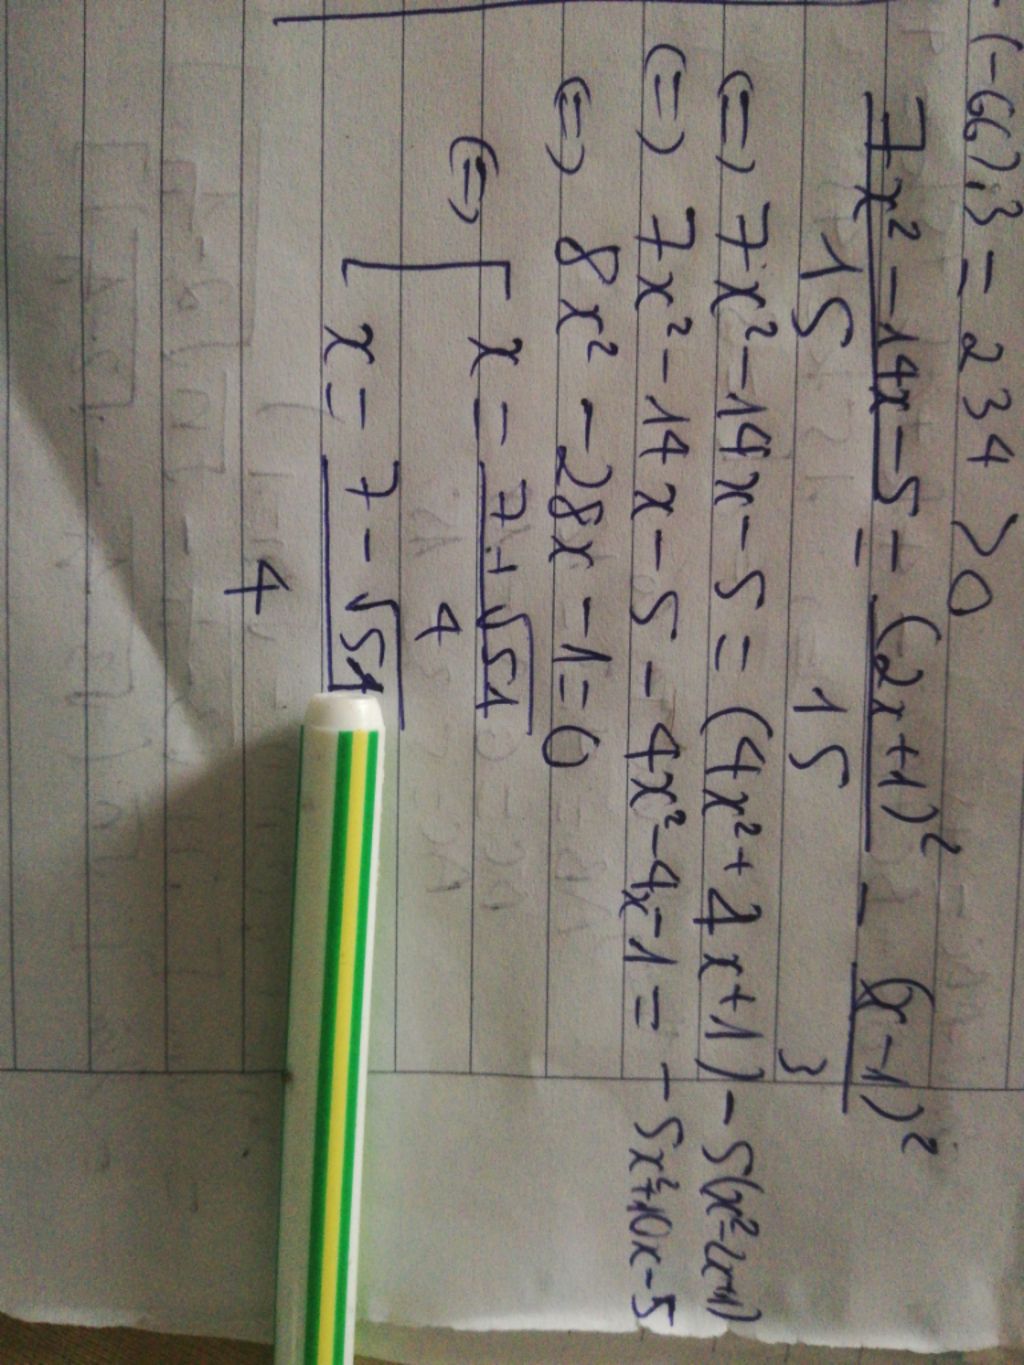 -(-66).3 = 234 > 0
7x² - 14x - 5 = (2x+1)² - (x-1)²
15 15 3
(=) 7x² - 14x - 5 = (4x² + 4x + 1) - 5(x² - 2x+1)
(=) 7x² - 14x - 5 - 4x² - 4x - 1 = - 5x² + 10x - 5
(=) 8x² - 28x - 1 = 0
(=) [ x = 7+√51
4
x = 7 - √51
4